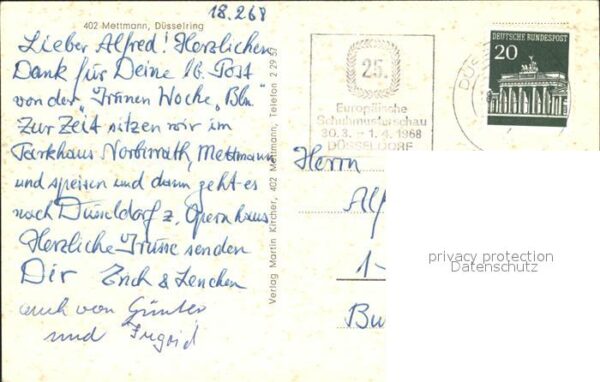 18.2.68
402 Mettmann, Düsselring
Lieber Alfred! Herzlichen
Dank für Deine lb. Post
von der „Grünen Woche „Bln"
Zur Zeit sitzen wir im
Parkhaus Mettmann
und speisen und dann geht es
nach Düsseldorf z. Opernhaus
Herzliche Grüsse senden
Dir Erich & Lenchen
auch von Günter
und Ingrid
Verlag Martin Kircher, 402 Mettmann, Telefon 2 29 57
25.
Europäische
Schuhmusterschau
30.3. - 1.4.1968
DÜSSELDORF
DÜS
DEUTSCHE BUNDESPOST
20
Herrn
Alf
1-
Bu
privacy protection
Datenschutz